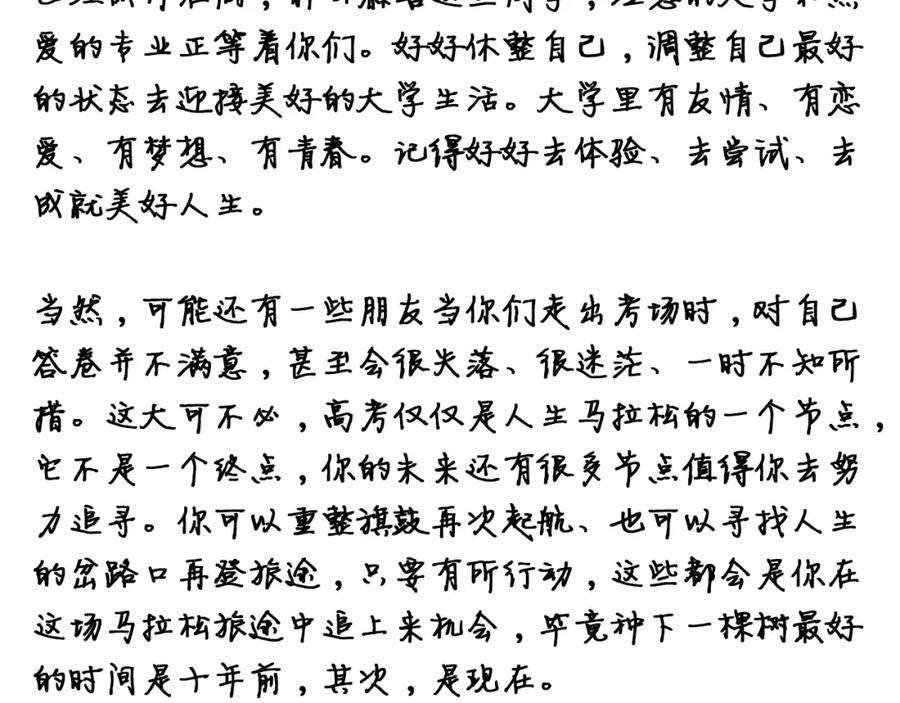 爱的专业正等着你们。好好休整自己，调整自己最好
的状态去迎接美好的大学生活。大学里有友情、有恋
爱、有梦想、有青春。记得好好去体验、去尝试、去
成就美好人生。
当然，可能还有一些朋友当你们走出考场时，对自己
答卷并不满意，甚至会很失落、很迷茫、一时不知所
措。这大可不必，高考仅仅是人生马拉松的一个节点，
它不是一个终点，你的未来还有很多节点值得你去努
力追寻。你可以重整旗鼓再次起航、也可以寻找人生
的岔路口再登旅途，只要有所行动，这些都会是你在
这场马拉松旅途中追上来机会，毕竟种下一棵树最好
的时间是十年前，其次，是现在。